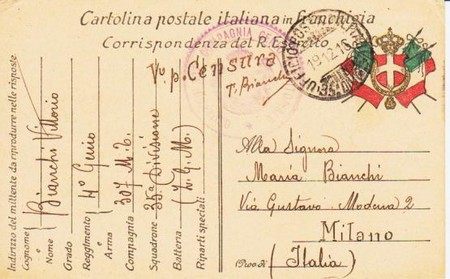 Cartolina postale italiana in franchigia
Corrispondenza del R. Esercito
COMPAGNIA
UFFICIO POSTA MILITARE
19.12.16
V° p. Censura
T. Bianchi
Indirizzo del mittente da riprodurre nelle risposte
Cognome e Nome Bianchi Vittorio
Grado
Reggimento e Arma 4° Genio
Compagnia 307 M.T.
Squadrone 35ª Divisione
Batteria (Z.G.M.)
Riparti speciali
Alla Signora
Maria Bianchi
Via Gustavo Modena 2
Milano
(Italia)